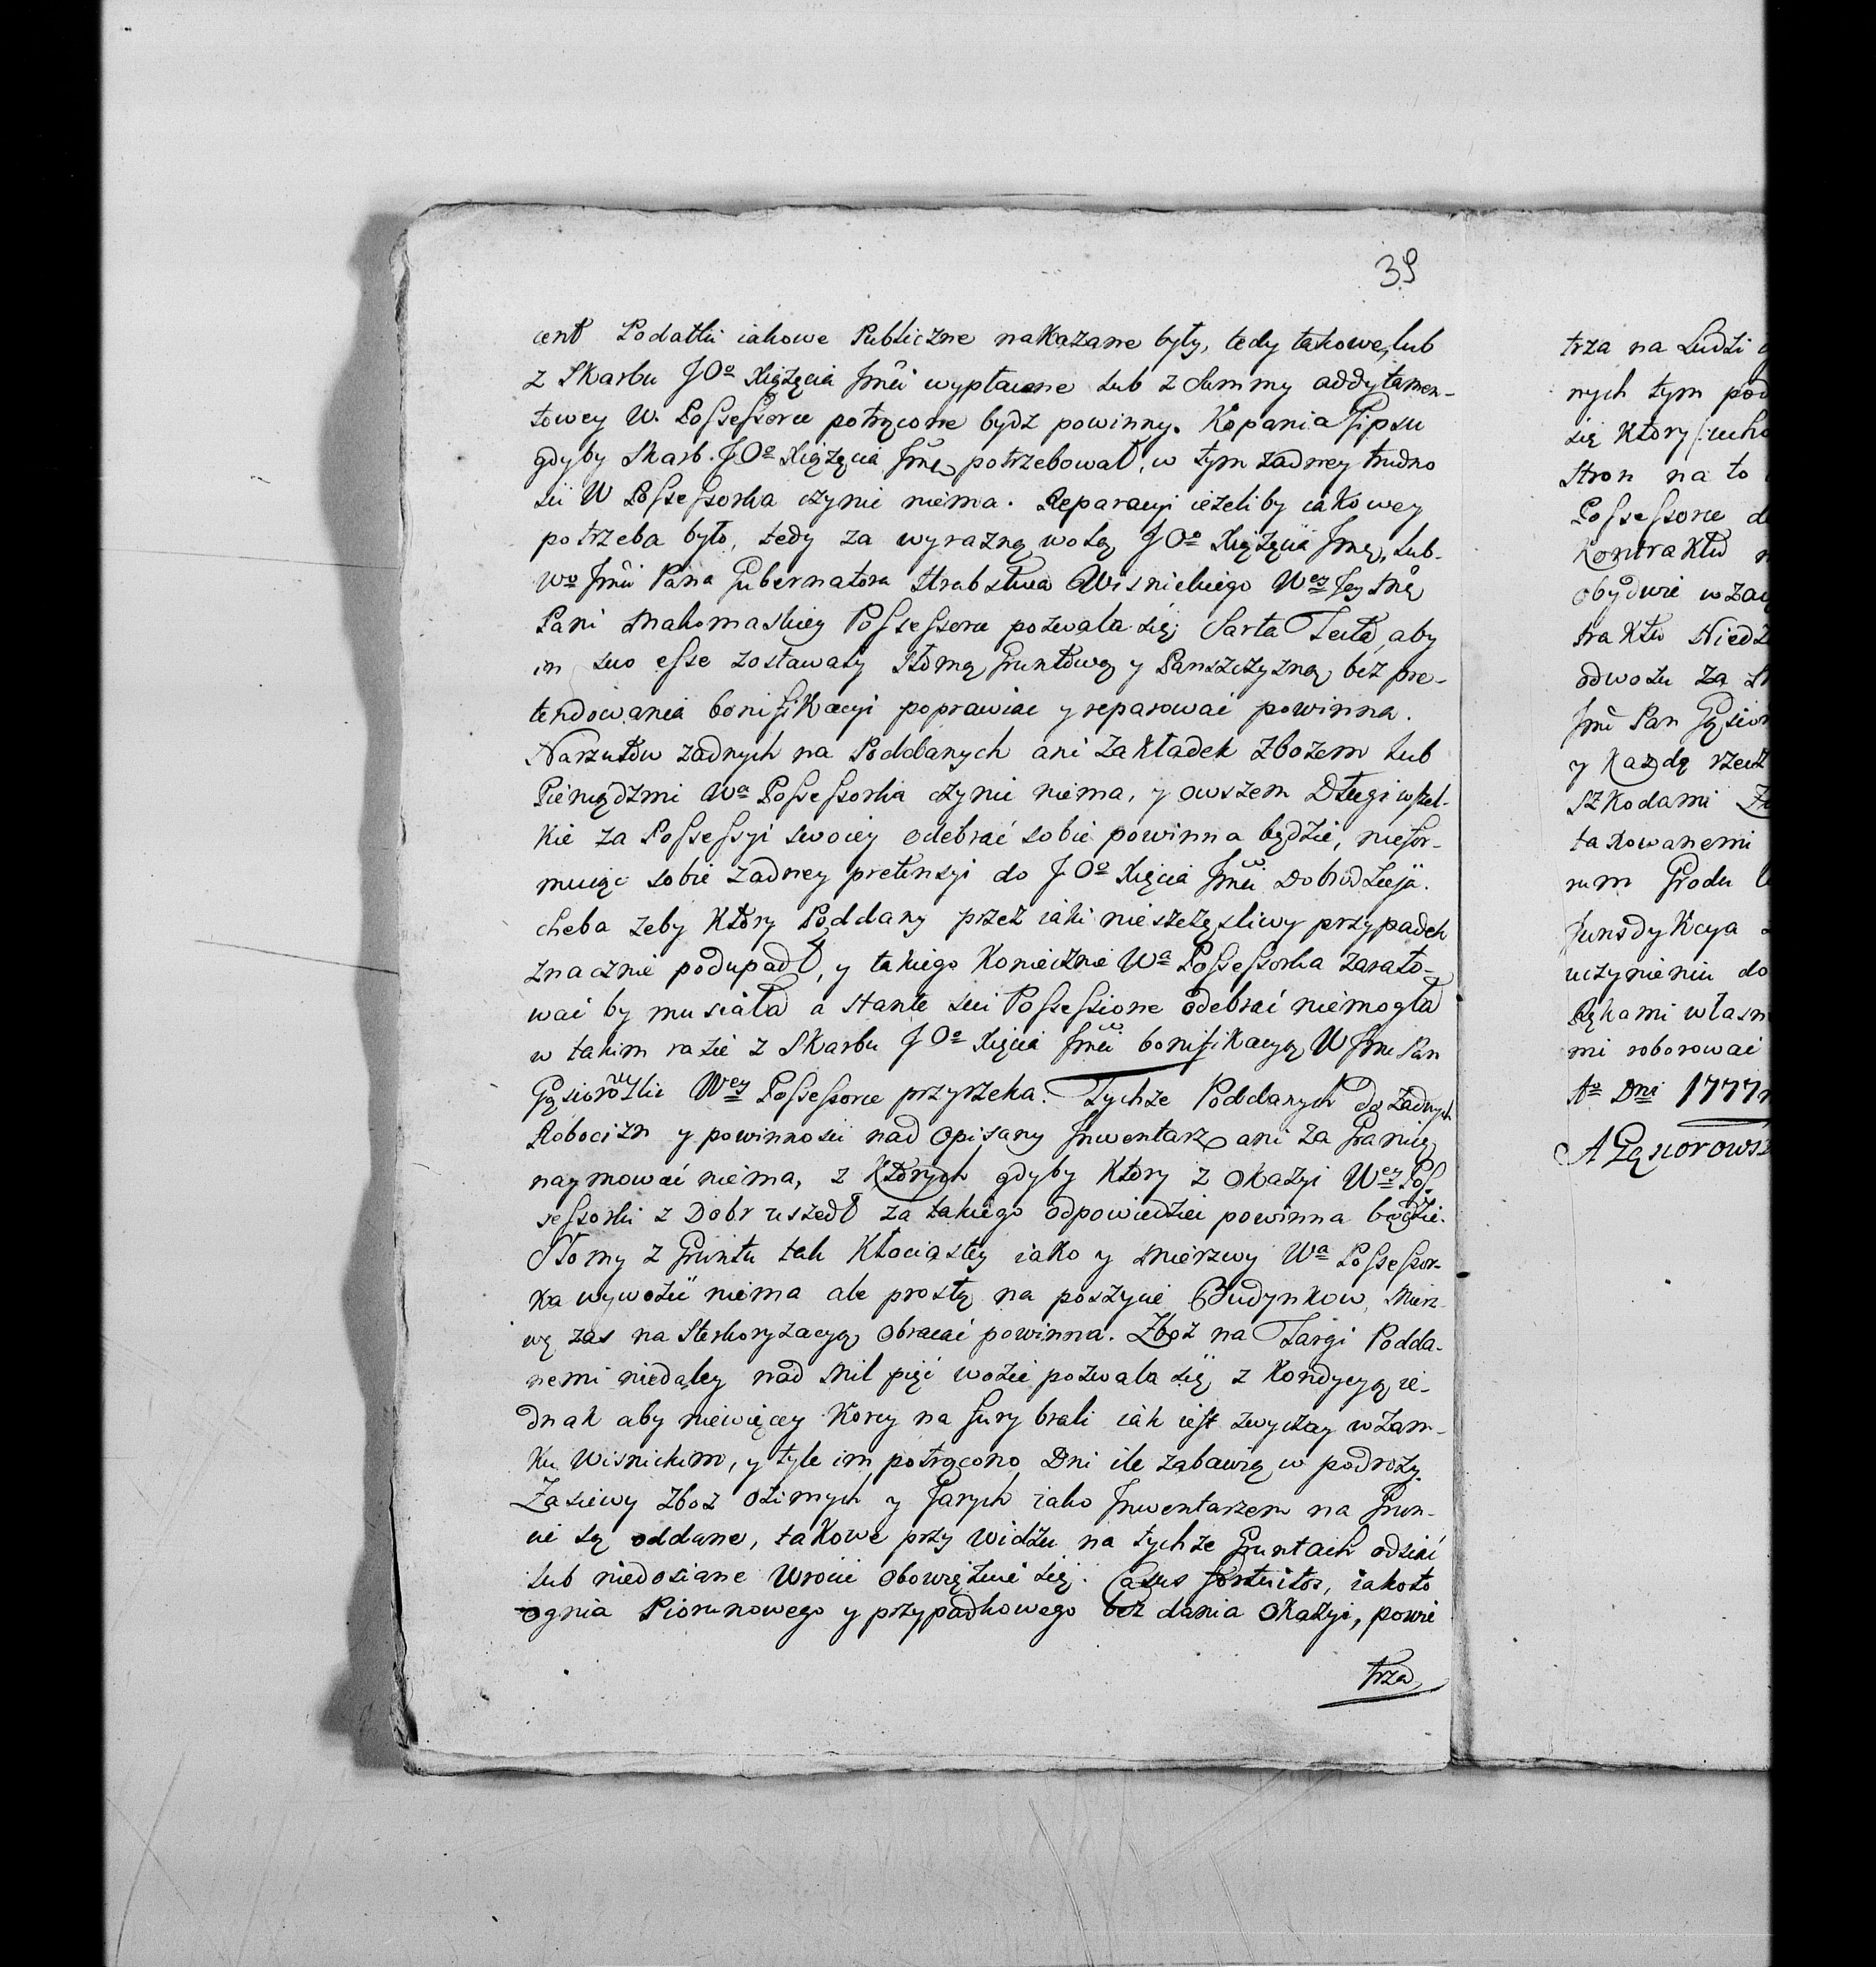 39
cent Podatki iakowe Publiczne nakazane były, tedy takowe, lub
z Skarbu J Oo Xiążęcia Jmći wypłacone lub z Summy addytamen-
towey W. Possessorce potrącone bydz powinny. Kopania Gipsu
gdyby Skarb. J.Oo Xiążęcia Jmći potrzebował, w tym zadney trudno
sci W Possessorka czynic niema. Reparacyi ieżeli by iakowey
potrzeba było, tedy za wyrazną wolą J Oo Xiążęcia Jmći, lub-
Wo Jmći Pana Gubernatora Hrabstwa Wisnickiego Wey Jey Mę
Pani Makomaskiey Possessorce pozwala się; Sarta Tecta, aby
in suo esse zostawały słomą Gruntową y Panszczyzną bez pre-
tendowania bonifikacyi poprawiac y reparowac powinna.
Narzutow zadnych na Poddanych ani zakładek zbożem lub
Pieniądzmi Wa Possessorka czynic niema, y owszem Długi wszel-
kie za Possessyi swoiey odebrać sobie powinna będzie, niefor-
muiąc sobie zadney pretensyi do J Oo Xięcia Jmći Dobrodzieja.
cheba zeby ktory Poddany przez iaki nieszczęsliwy przypadek
znacznie podupadł, y takiego koniecznie Wa Possessorka zarato-
wac by musiała a stante sui Possessione odebrać niemogła
w takim razie z Skarbu J Oo Xięcia Jmći bonifikacyą W Jmć Pan
Gąsiorowski Wey Possessorce przyrzeka. Tychże Poddanych do żadnych
Robocizn y powinnosci nad opisany Inwentarz ani za Granicę
naymować niema, z ktorych gdyby ktory z okazyi Wey Pos
sessorki z Dobr uszedł za takiego odpowiedziec powinna będzie.
Słomy z Gruntu tak kłociastey iako y mierzwy Wa Possessor-
ka wywozic niema ale prostą na poszycie Budynkow, Mierz-
wę zas na sterkoryzacyą obracać powinna. Zboż na Targi Podda-
nemi niedaley nad Mil pięć wozic pozwala się, z kondycyą ie-
dnak aby niewięcey korcy na fury brali iak iest zwyczay w Zam-
ku Wisnickim, y tyle im potrącono Dni ile zabawią w podroży.
Zasiewy zboż ozimych y Jarych iako Inwentarzem na Grun-
cie są oddane, takowe przy widzu na tychże Gruntach odsiać
lub niedosiane wrocić obowięzuie się. Casus fortuitos, iakoto
ognia Piorunowego y przypadkowego bez dania okazyi, powie
trza
trza na Ludzi
nych tym
się ktory
stron na to
Possessorce
kontraktu
obydwie
traktu
odwozu za
Jmć Pan
y każdą rzecz
szkodami
takowanemi
rum Grodu
Jurisdykcya
uczynieniu do
Rękami własn
mi roborowac
Ao Dni 1777
A Gąsiorows